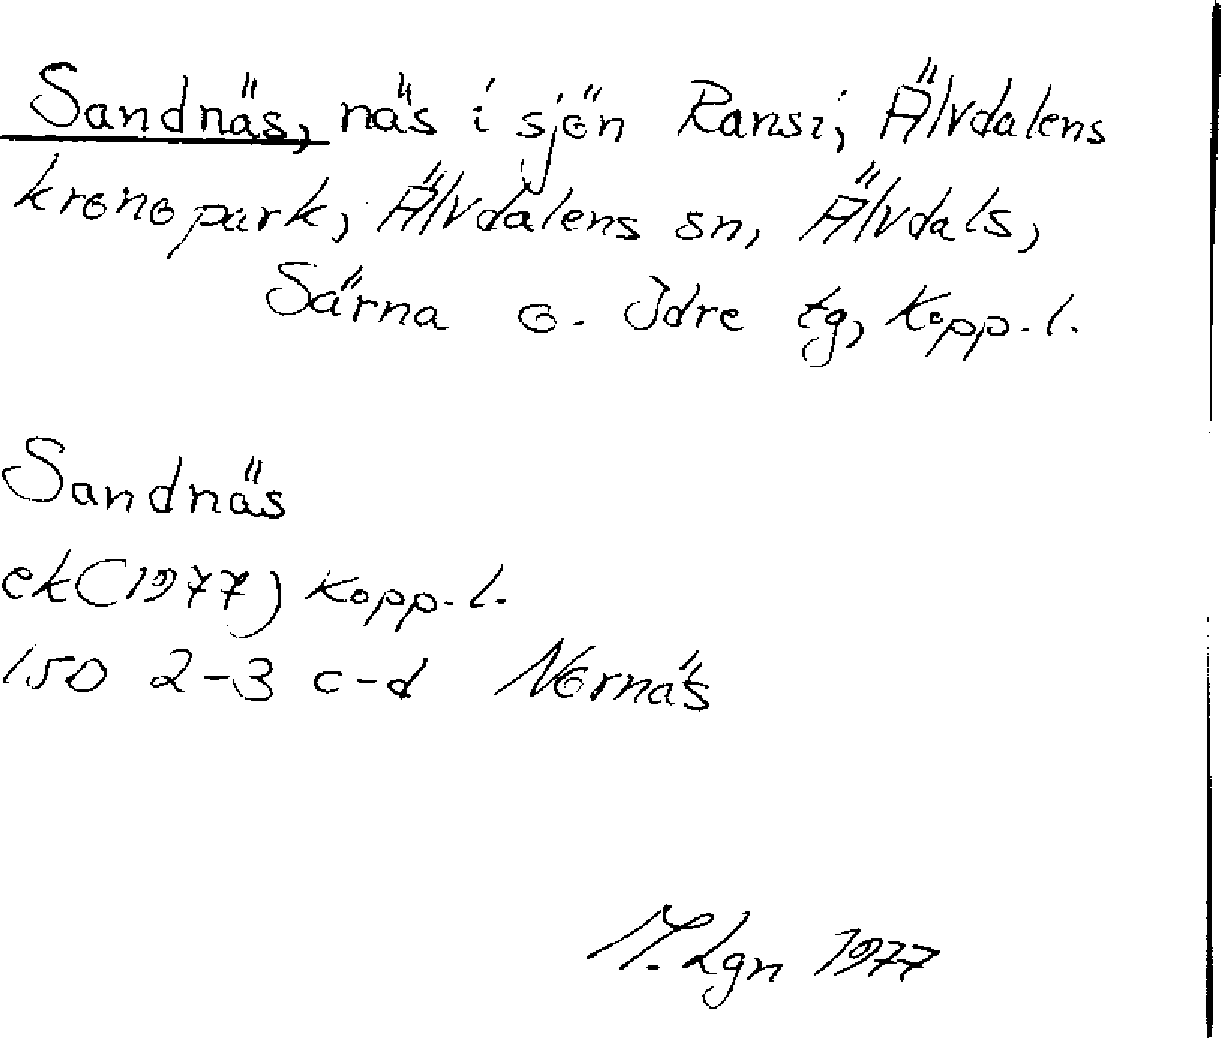 Sandnäs, näs i sjön Ransi, Älvdalens
kronopark, Älvdalens sn, Älvdals,
Särna o. Idre tg, Kopp. l.
Sandnäs
ek (1977) Kopp. l.
150 2-3 c-d Nornäs
M. Lgn 1977